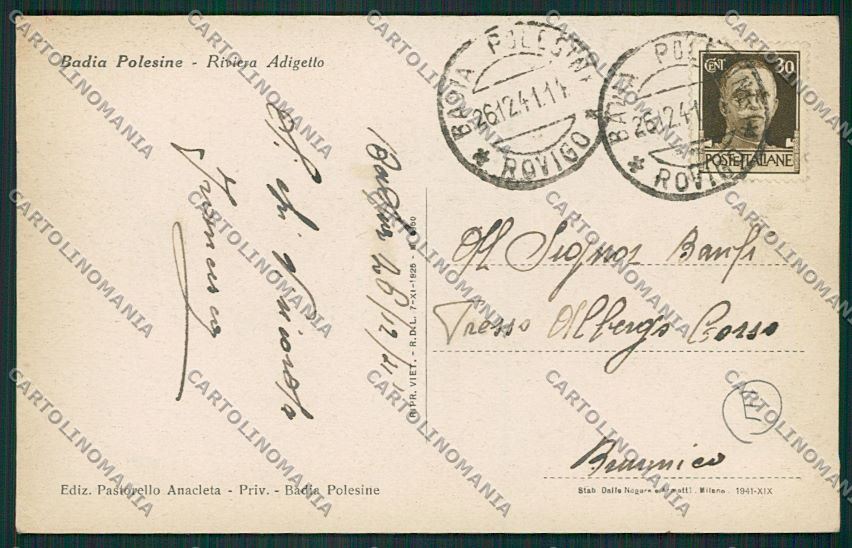 Badia Polesine - Riviera Adigetto
BADIA POLESINE
26.12.41.11
* ROVIGO *
BADIA POLES
26.12.41
* ROVIGO
CENT 30
POSTE ITALIANE
Badia 26/12/41
Francesco
RIPR. VIET. - R.D.L. 7-XI-1925 -
Al Signor Banfi
Presso Albergo Corso
Brunico
E
Ediz. Pastorello Anacleta - Priv. - Badia Polesine
Stab. Dalle Nogare e Armetti. Milano. 1941-XIX
CARTOLINOMANIA